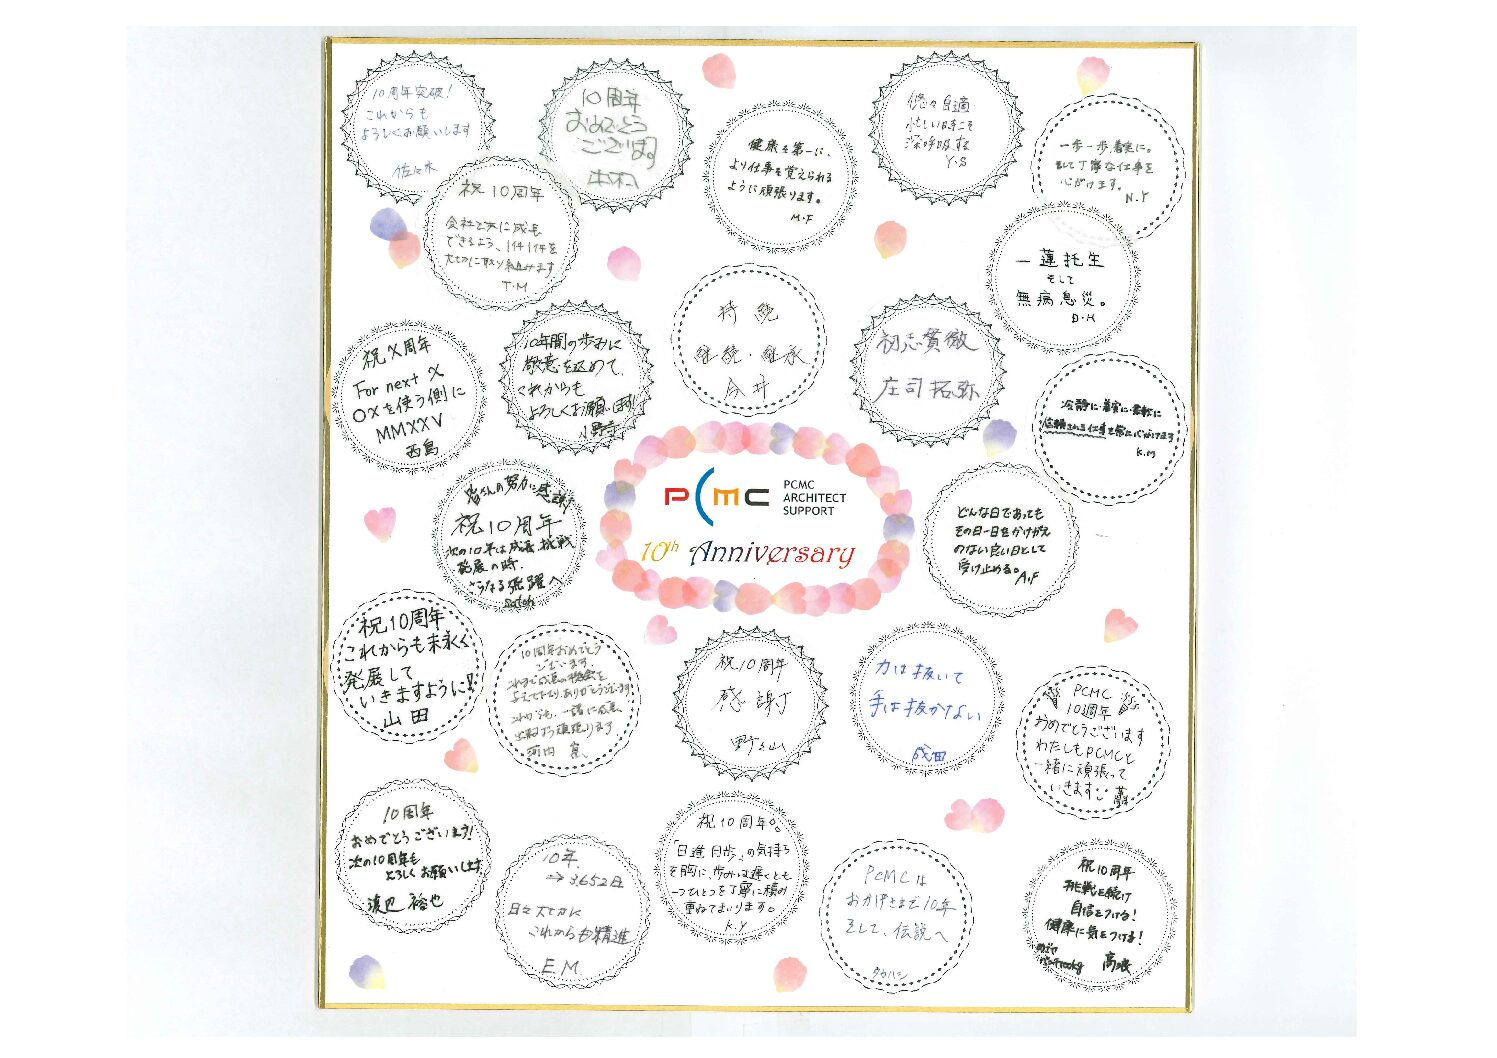 10周年突破!
これからも
よろしくお願いします
佐々木
10周年
おめでとう
ございます
木村
健康を第一に、
より仕事を覚えられる
ように頑張ります。
M・F
悠々自適
忙しい時こそ
深呼吸を
Y・S
一歩一歩着実に。
そして丁寧な仕事を
心がけます。
N.Y
祝10周年
会社と共に成長
できるよう、1件1件を
大切に取り組みます
T・M
一蓮托生
そして
無病息災。
D・K
祝X周年
For next X
OXを使う側に
MMXXV
西島
10年間の歩みに
敬意を込めて、
これからも
よろしくお願いします!
小野寺
持続
継続・継承
今井
初志貫徹
庄司拓弥
冷静に・着実に・柔軟に
信頼される仕事を常に心がけます
K.M
皆さんの努力に感謝!
祝10周年
次の10年は成長、挑戦
発展の時.
さらなる飛躍へ
Satoh
PCMC
PCMC
ARCHITECT
SUPPORT
10th Anniversary
どんな日であっても
その日一日をかけがえ
のない良い日として
受け止める。
A.F
祝10周年
これからも末永く
発展して
いきますように!!
山田
10周年おめでとう
ございます.
これまで成長の機会を
与えて下さりありがとうございます
これからも、一緒に成長
出来るよう頑張ります
河内
祝10周年
感謝
野々山
力は抜いて
手は抜かない
成田
PCMC
10周年
おめでとうございます
わたしもPCMCと
一緒に頑張って
いきます
10周年
おめでとうございます!
次の10周年も
よろしくお願いします
渡辺 裕也
10年.
→3,652日
日々大切に
これからも精進
E M
祝10周年。
「日進月歩」の気持ち
を胸に、歩みは遅くとも
一つひとつを丁寧に積み
重ねてまいります。
K.Y
PCMCは
おかげさまで10年
そして、伝説へ
タカハシ
祝10周年
挑戦を続け
自信をつける!
健康に気をつける!